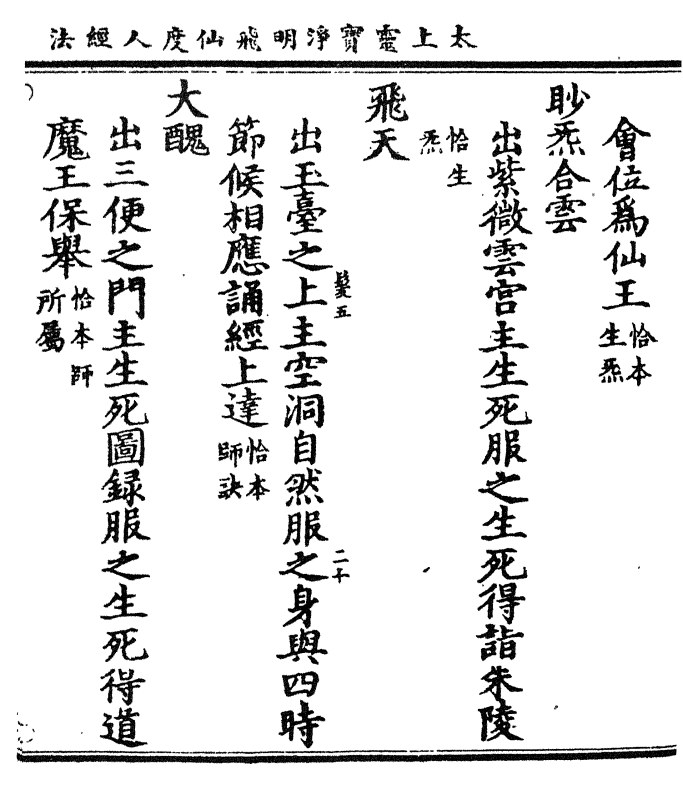 太上靈寶淨明飛仙度人經法
會位爲仙王恰本生炁
眇炁合雲
出紫微雲宫主生死服之生死得詣朱陵
恰生炁
飛天
出玉臺之上主空洞自然服之身與四時
髮五
二十
節候相應誦經上達恰本師訣
大醜
出三便之門主生死圖録服之生死得道
魔王保舉恰本師所屬